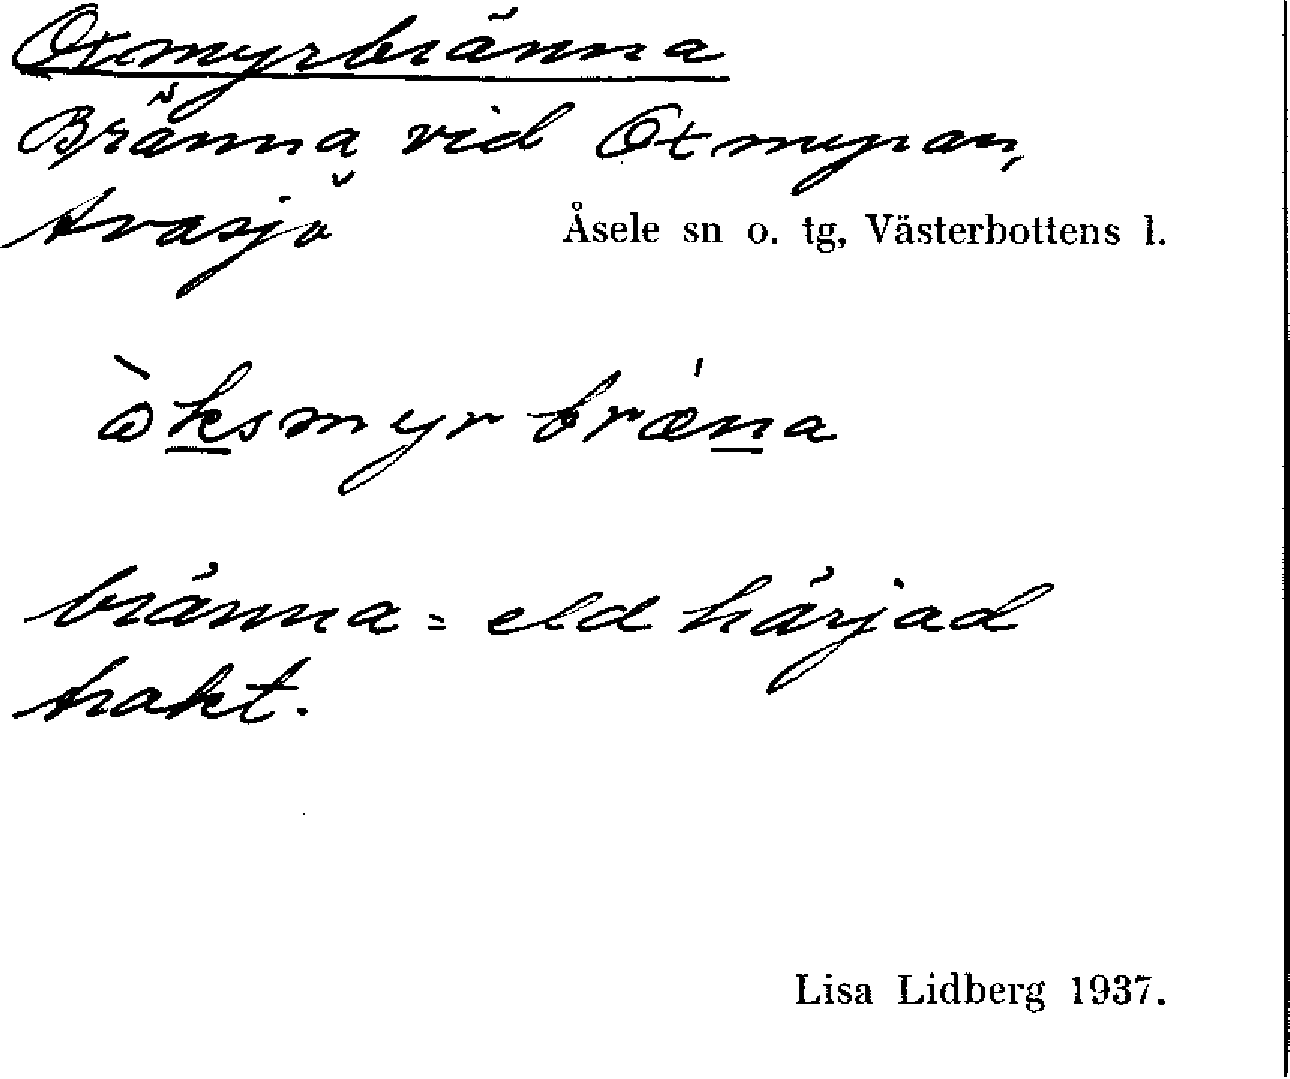 Oxmyrbränna
Bränna vid Oxmyran,
Avasjö Åsele sn o. tg, Västerbottens l.
ò̀ksmyrbrǽna
bränna = eld härjad
trakt.
Lisa Lidberg 1937.